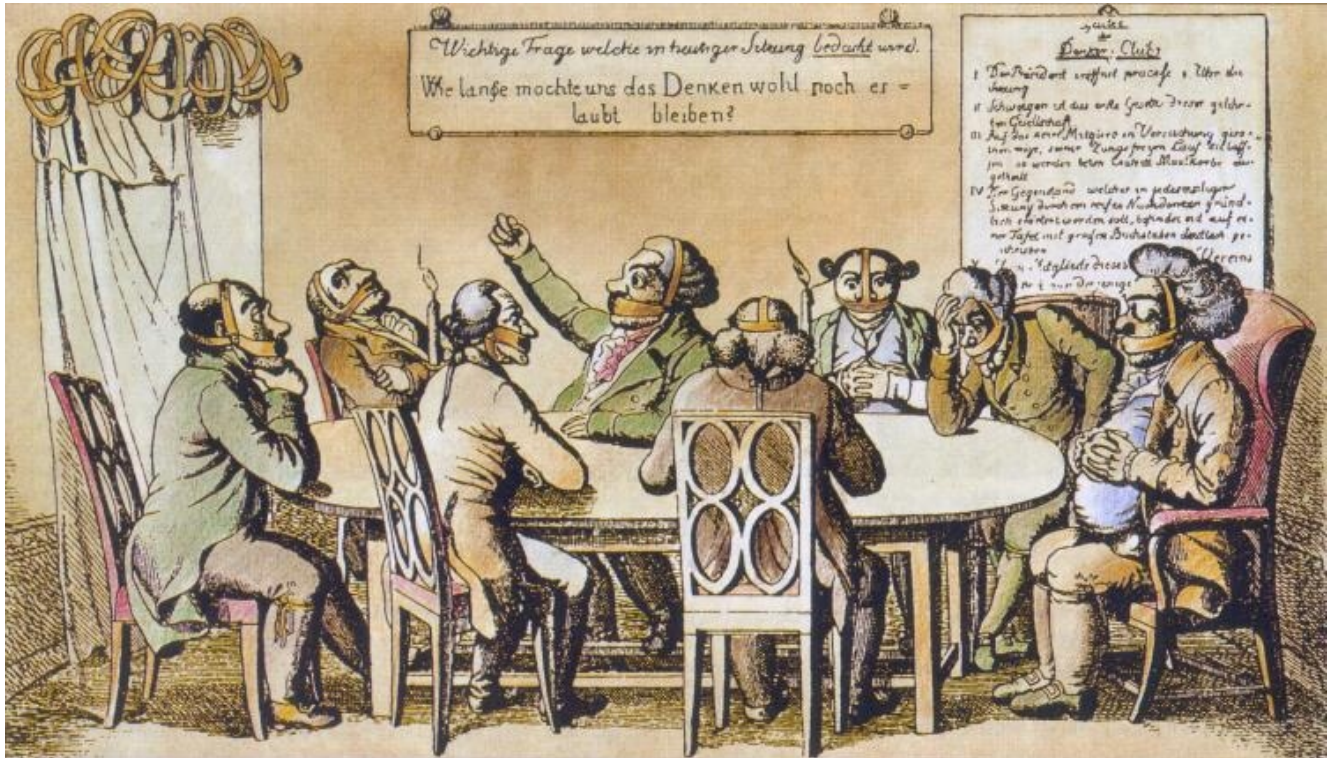 Wichtige Frage welche in heutiger Sitzung bedacht wird.
Wie lange mochte uns das Denken wohl noch er=
laubt bleiben?
der
Denker-Club
I Der Präsident eröffnet precise Uhr die
Sitzung
II Schweigen ist das erste Gesetz dieser gelehr-
ten Gesellschaft
III Auf das kein Mitglied in Versuchung
möge, seiner Zunge freyen Lauf
so werden beim Maulkörbe aus-
getheilt
IV Der Gegenstand welcher in jedesmaliger
Sitzung durch ein reifes Nachdenken gründ-
lich erörtert werden soll, befindet sich auf ei-
ner Tafel mit großen Buchstaben deutlich ge-
schrieben
Mitglieder dieses Vereins